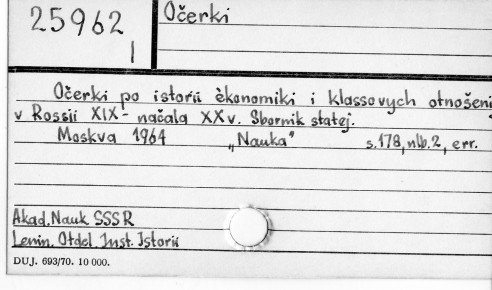 25962
I
Očerki
Očerki po istorii ėkonomiki i klassovych otnošeni
v Rossii XIX - načala XX v. Sbornik statej.
Moskva 1964 „Nauka" s.178, nlb.2, err.
Akad. Nauk SSSR
Lenin. Otdel. Inst. Istorii
DUJ. 693/70. 10 000.